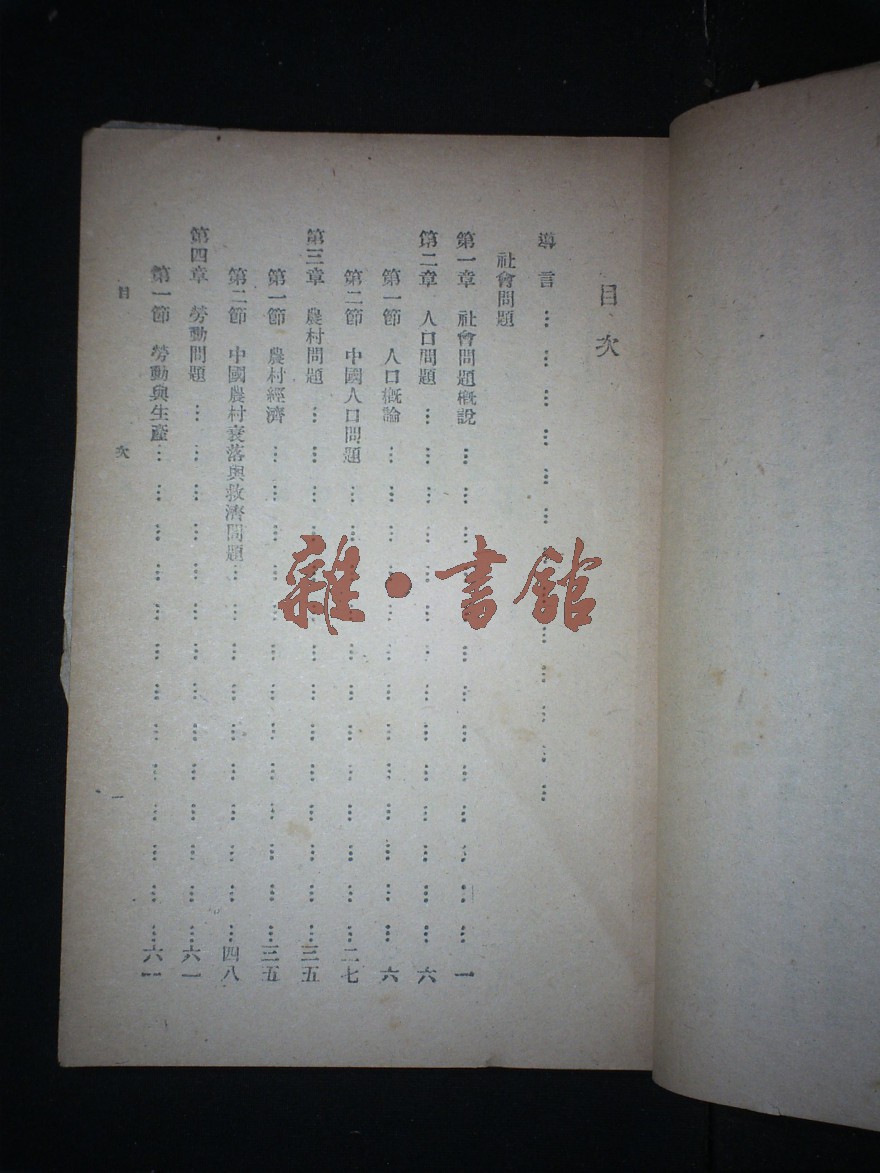 目次
導言…………………………………
社會問題
第一章 社會問題概說…………………………………一
第二章 人口問題…………………………………六
第一節 人口概論…………………………………六
第二節 中國人口問題…………………………………二七
第三章 農村問題…………………………………三五
第一節 農村經濟…………………………………三五
第二節 中國農村衰落與救濟問題…………………………四八
第四章 勞動問題…………………………………六一
第一節 勞動與生產…………………………………六一
目次
一
雜·書館